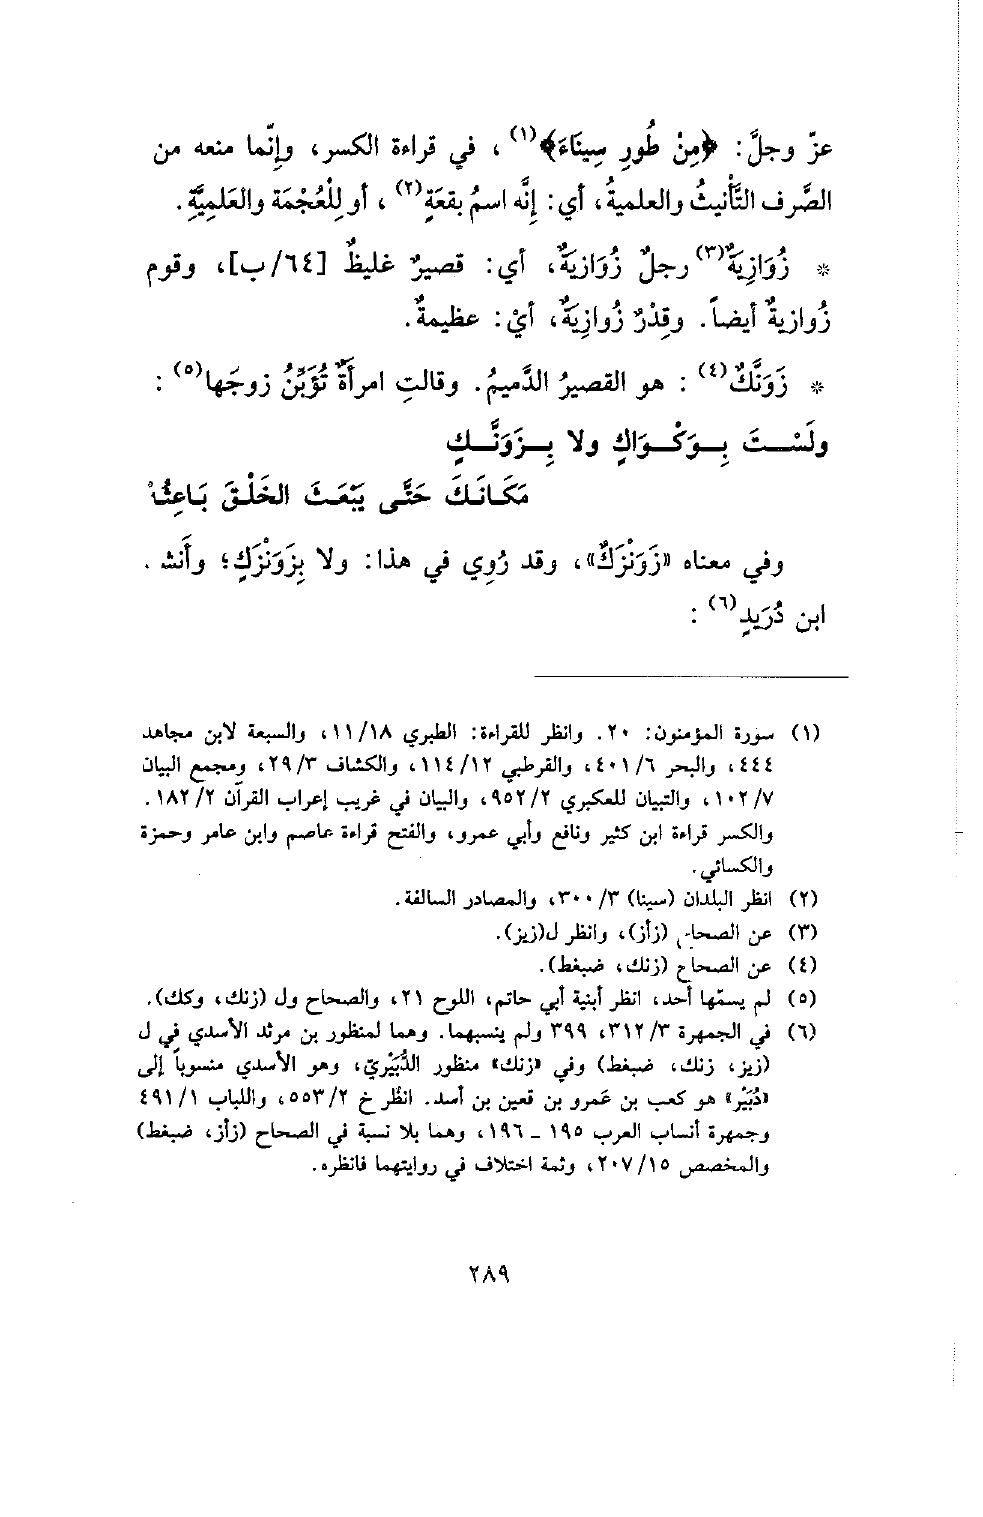 عزّ وجلَّ: ﴿مِنْ طُورِ سِينَاءَ﴾(١) ، في قراءة الكسر، وإنّما منعه من
الصَّرف التَّأنيثُ والعلميةُ، أي: إنَّه اسمُ بقعَةٍ(٢) ، أو لِلْعُجْمَة والعَلَمِيَّةِ .
* زُوَازِيَةٌ(٣) رجلٌ زُوَازيَةٌ، أي: قصيرٌ غليظٌ [٦٤/ب]، وقوم
زُوازيةٌ أيضاً. وقِدْرٌ زُوازِيَةٌ، أيْ: عظيمةٌ.
* زَوَنَّكٌ(٤) : هو القصيرُ الدَّميمُ. وقالتِ امرأةٌ تُؤَبِّنُ زوجَها(٥) :
ولَسْتَ بِوَكْوَاكٍ ولا بِزَوَنَّكٍ
مَكَانَكَ حَتَّى يَبْعَثَ الخَلْقَ بَاعِثُهْ
وفي معناه «زَوَنْزَكٌ»، وقد رُوِي في هذا: ولا بِزَوَنْزَكٍ؛ وأَنشد .
ابن دُرَيدٍ(٦) :
(١) سورة المؤمنون: ٢٠. وانظر للقراءة: الطبري ١١/١٨، والسبعة لابن مجاهد
٤٤٤، والبحر ٤٠١/٦، والقرطبي ١١٤/١٢، والكشاف ٢٩/٣، ومجمع البيان
١٠٢/٧، والتبيان للعكبري ٩٥٢/٢، والبيان في غريب إعراب القرآن ١٨٢/٢.
والكسر قراءة ابن كثير ونافع وأبي عمرو، والفتح قراءة عاصم وابن عامر وحمزة
والكسائي.
(٢) انظر البلدان (سينا) ٣٠٠/٣، والمصادر السالفة.
(٣) عن الصحاح (زأز)، وانظر ل(زيز).
(٤) عن الصحاح (زنك، ضبغط).
(٥) لم يسمّها أحد، انظر أبنية أبي حاتم، اللوح ٢١، والصحاح ول (زنك، وكك).
(٦) في الجمهرة ٣١٢/٣، ٣٩٩ ولم ينسبهما. وهما لمنظور بن مرثد الأسدي في ل
(زيز، زنك، ضبغط) وفي «زنك» منظور الدُّبَيْريّ، وهو الأسدي منسوباً إلى
«دُبَيْر» هو كعب بن عَمرو بن قعين بن أسد. انظُر خ ٥٥٣/٢، واللباب ٤٩١/١
وجمهرة أنساب العرب ١٩٥ ـ ١٩٦، وهما بلا نسبة في الصحاح (زأز، ضبغط)
والمخصص ٢٠٧/١٥، وثمة اختلاف في روايتهما فانظره.
٢٨٩